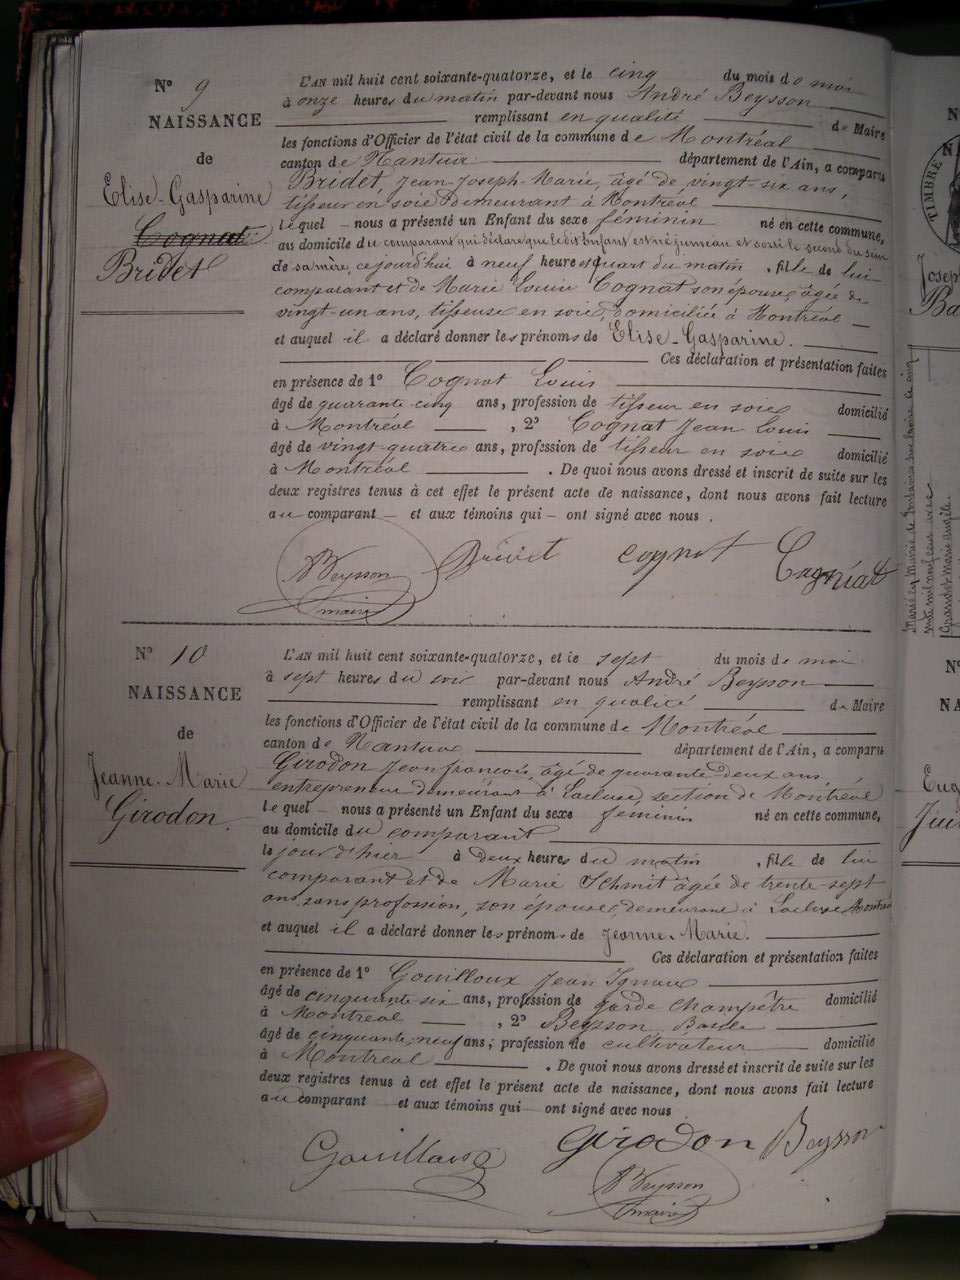 N° 9
NAISSANCE
de
Elise-Gasparine
Cognat
Bridet
L'AN mil huit cent soixante-quatorze, et le cinq du mois de mai
à onze heures du matin par-devant nous André Beysson
remplissant en qualité de Maire
les fonctions d'Officier de l'état civil de la commune de Montréal
canton de Nantua département de l'Ain, a comparu
Bridet, Jean-Joseph-Marie, âgé de vingt-six ans,
tisseur en soie demeurant à Montréal
lequel nous a présenté un Enfant du sexe féminin né en cette commune,
au domicile du comparant qui déclare que ledit Enfant est né jumeau et sorti le second du sein
de sa mère, cejourd'hui à neuf heures quart du matin, fille de lui
comparant et de Marie Louise Cognat son épouse, âgée de
vingt-un ans, tisseuse en soie, domiciliée à Montréal
et auquel il a déclaré donner les prénoms de Elise-Gasparine.
Ces déclaration et présentation faites
en présence de 1° Cognat Louis
âgé de quarante-cinq ans, profession de tisseur en soie domicilié
à Montréal, 2° Cognat Jean Louis
âgé de vingt-quatre ans, profession de tisseur en soie domicilié
à Montréal. De quoi nous avons dressé et inscrit de suite sur les
deux registres tenus à cet effet le présent acte de naissance, dont nous avons fait lecture
au comparant et aux témoins qui ont signé avec nous.
Beysson Brivet cognat Cognat
maire
N° 10
NAISSANCE
de
Jeanne-Marie
Girodon.
L'AN mil huit cent soixante-quatorze, et le sept du mois de mai
à sept heures du soir par-devant nous André Beysson
remplissant en qualité de Maire
les fonctions d'Officier de l'état civil de la commune de Montréal
canton de Nantua département de l'Ain, a comparu
Girodon Jean françois, âgé de quarante-deux ans,
entrepreneur demeurant à Lacluse, section de Montréal
lequel nous a présenté un Enfant du sexe féminin né en cette commune,
au domicile du comparant
le jour d'hier à deux heures du matin, fille de lui
comparant et de Marie Schmit âgée de trente-sept
ans, sans profession, son épouse, demeurant à Lacluse Montréal
et auquel il a déclaré donner les prénoms de Jeanne-Marie.
Ces déclaration et présentation faites
en présence de 1° Gouilloux Jean Ignace
âgé de cinquante-six ans, profession de garde champêtre domicilié
à Montréal, 2° Beysson
âgé de cinquante-neuf ans, profession de cultivateur domicilié
à Montréal. De quoi nous avons dressé et inscrit de suite sur les
deux registres tenus à cet effet le présent acte de naissance, dont nous avons fait lecture
au comparant et aux témoins qui ont signé avec nous
Gouilloux girodon Beysson
Beysson
maire
TIMBRE